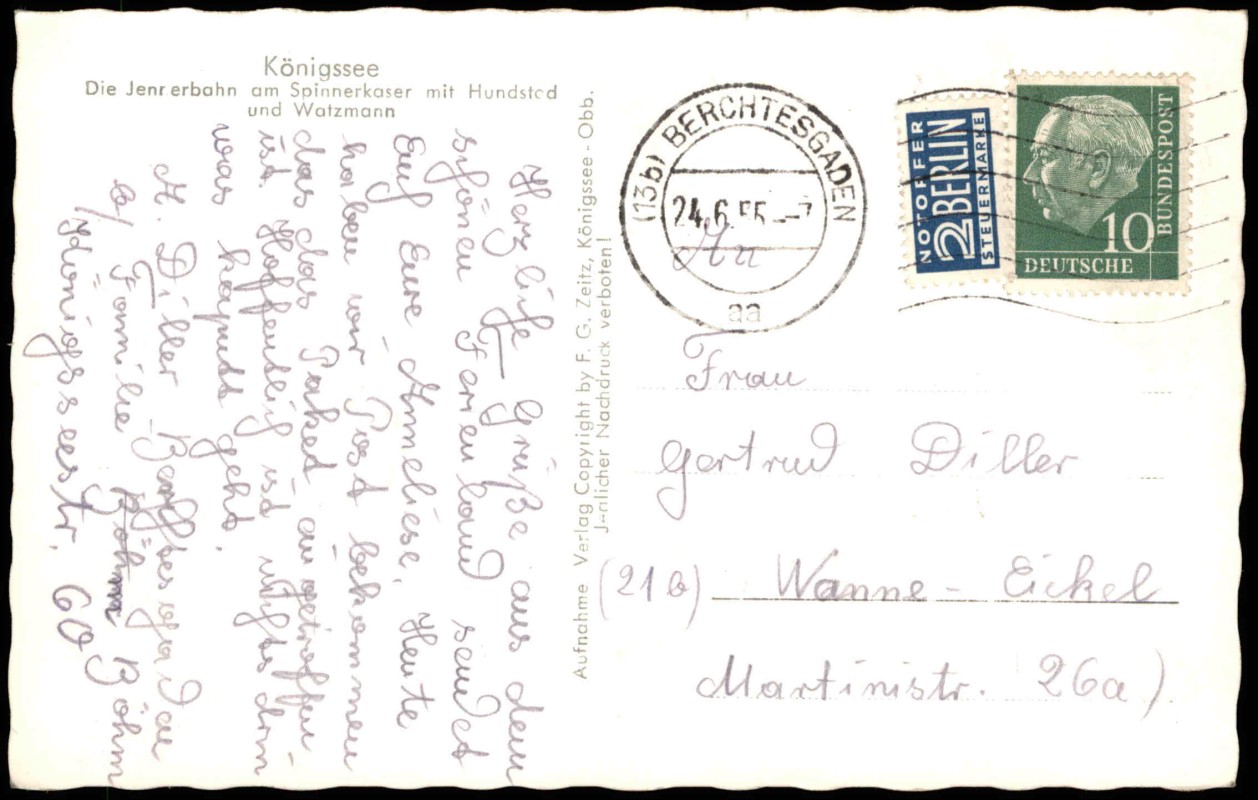 Königssee
Die Jennerbahn am Spinnerkaser mit Hundstod
und Watzmann
Herzliche Grüße aus dem
schönen Ferienland sendet
Euch Eure Anneliese. Heute
haben wir Post bekommen
das das Paket angetroffen
ist. Hoffentlich ist nichts drin
was kaputt geht.
A. Diller Berchtesgaden
b/ Familie Böhm
Königsseerstr. 60
Aufnahme Verlag Copyright by F. G. Zeitz, Königssee - Obb.
J-nlicher Nachdruck verboten!
(13b) BERCHTESGADEN
24.6.55.--7
aa
NOTOPFER
2 BERLIN
STEUERMARKE
10
DEUTSCHE
BUNDESPOST
An
Frau
Gertrud Diller
(21b) Wanne-Eickel
Martinistr. 26a)